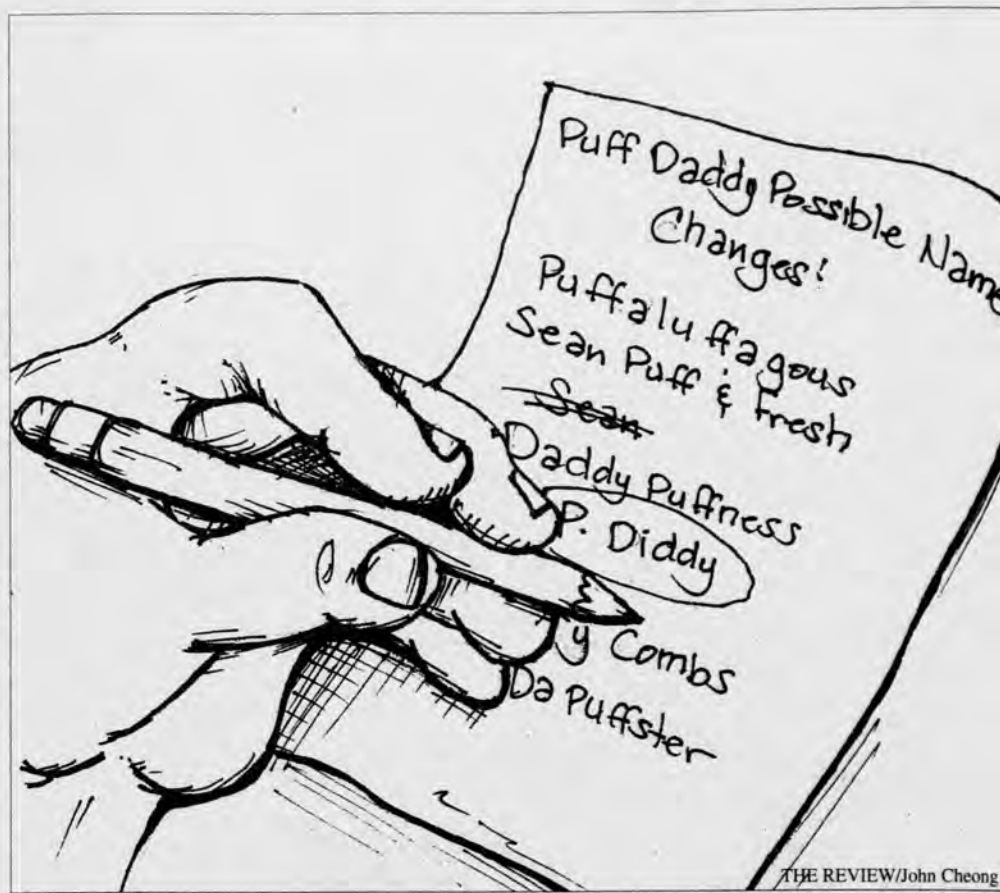 Puff Daddy Possible Name
Changes!
Puffaluffagous
Sean Puff & Fresh
Sean
Daddy Puffness
P. Diddy
y Combs
Da Puffster
THE REVIEW/John Cheong